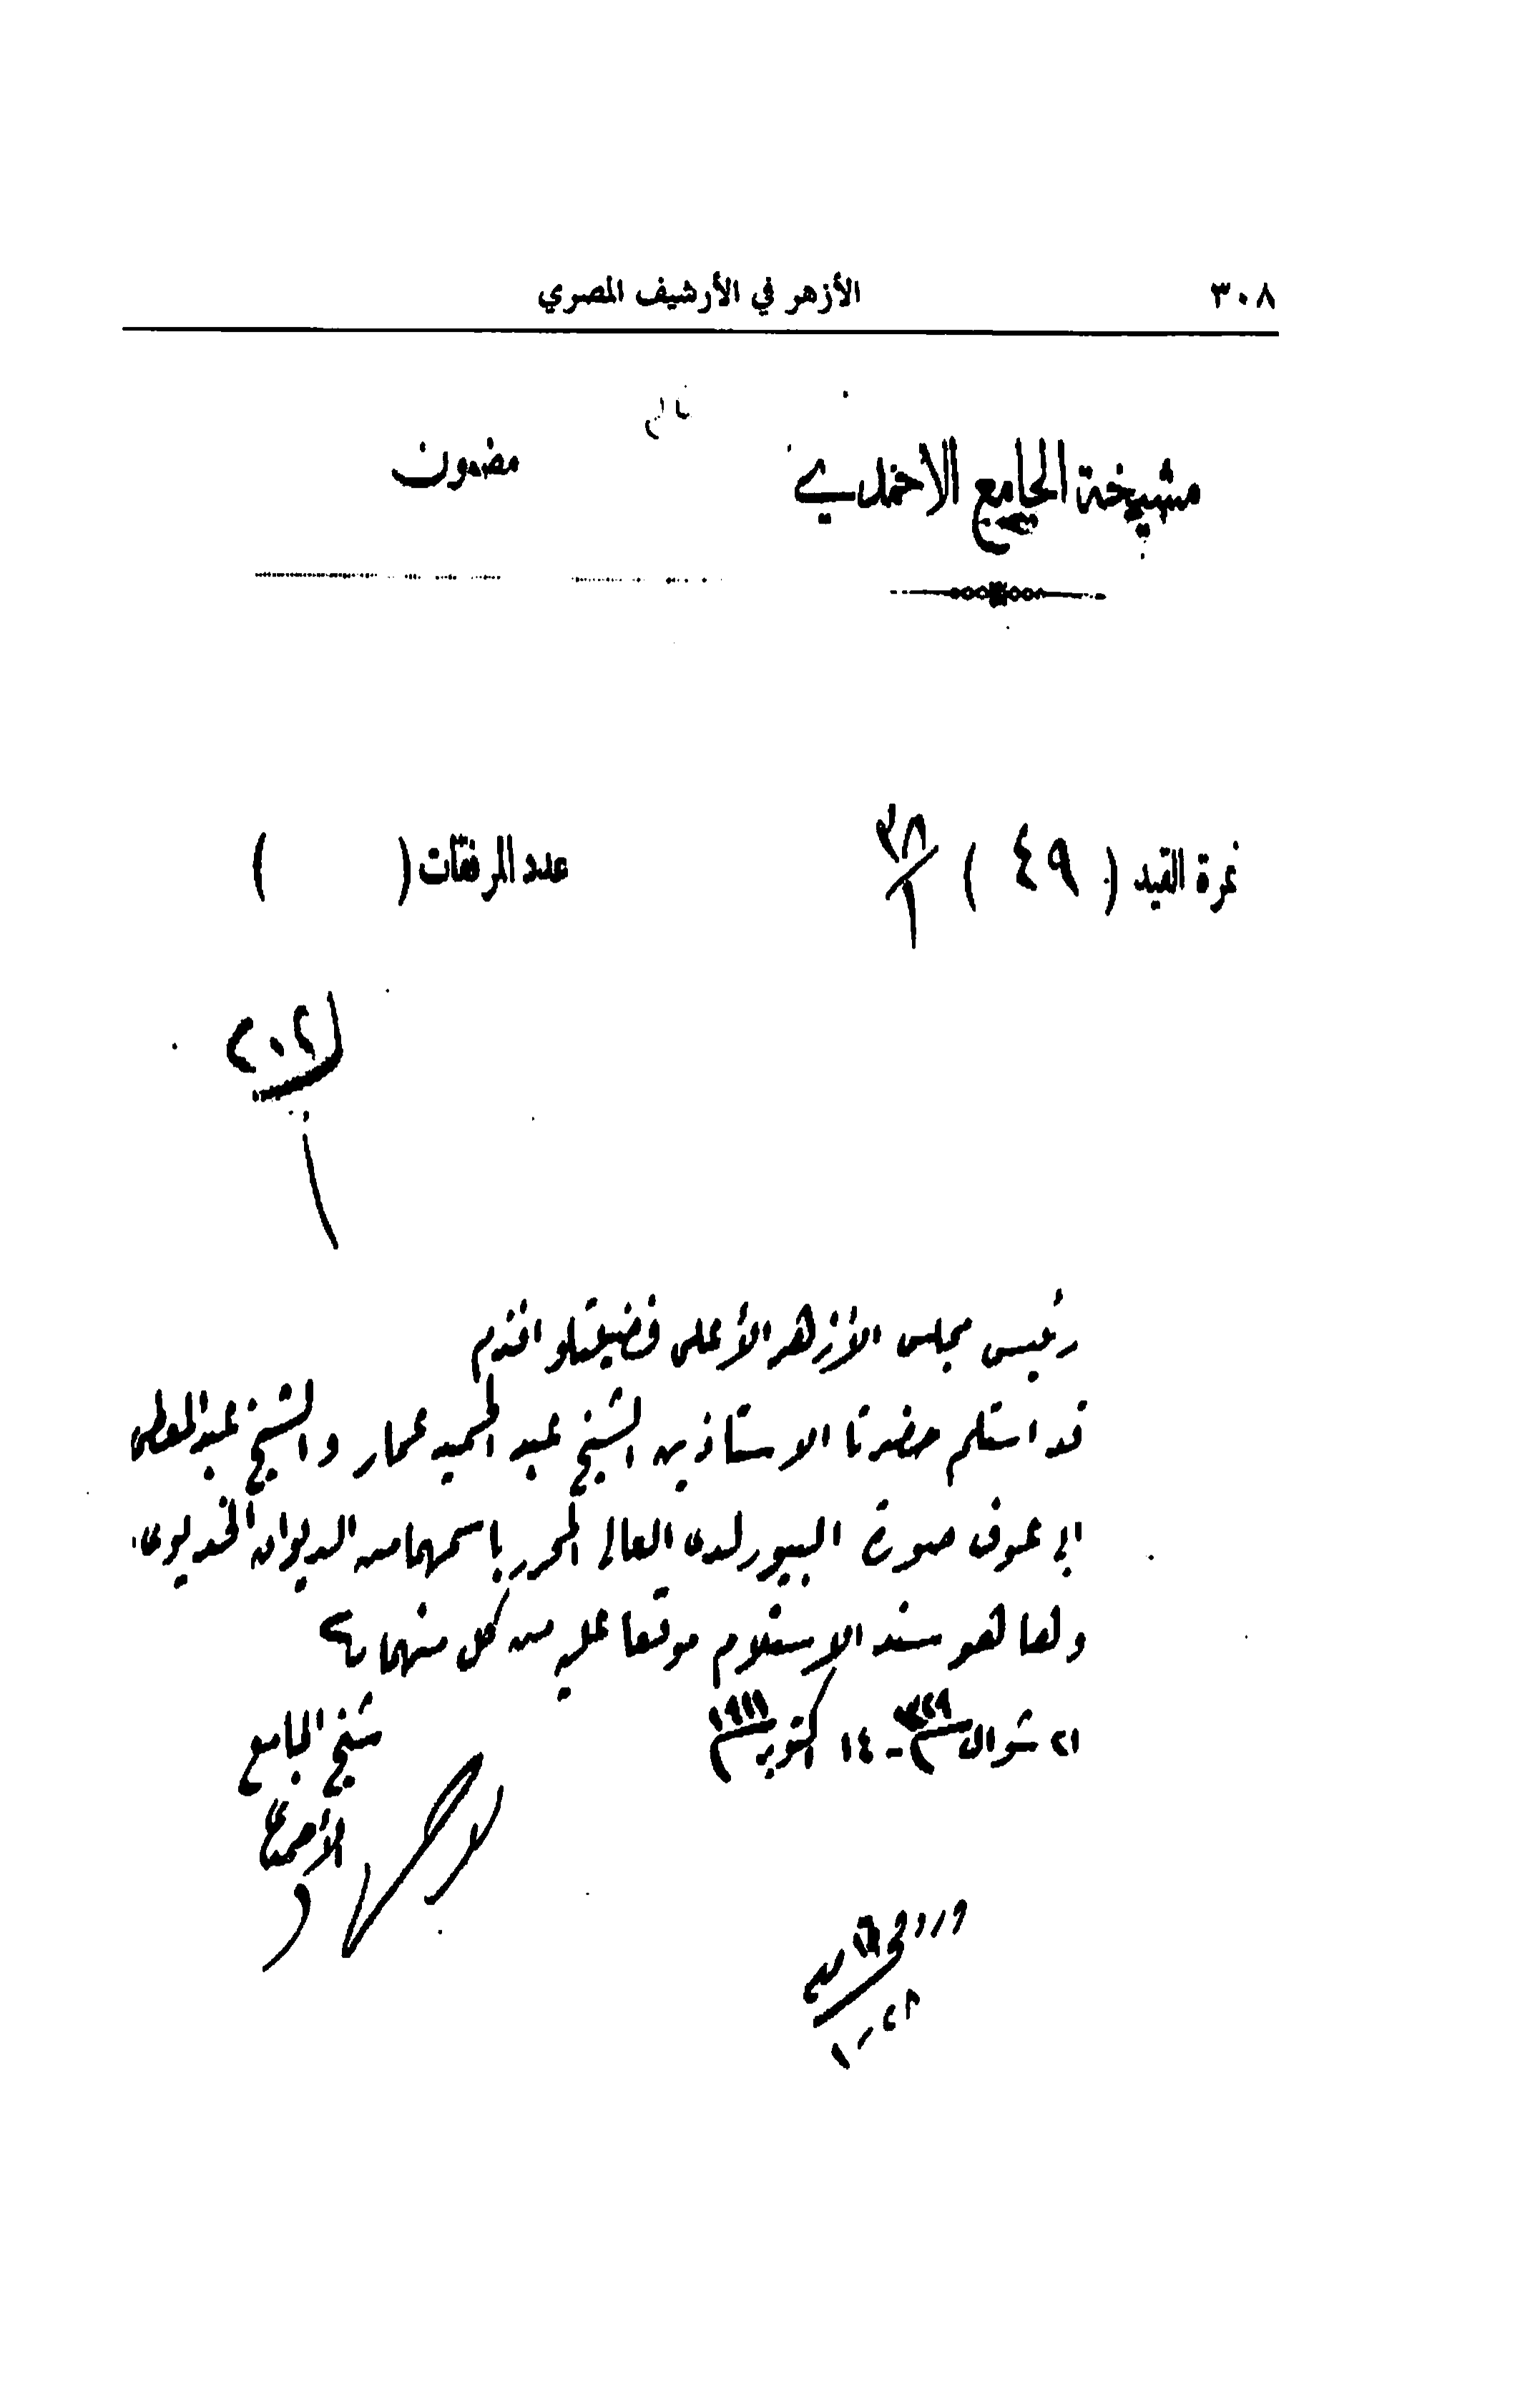 ٣٠٨ الأزهر في الأرشيف المصري
مشيخة الجامع الاحمدي
مضمون
نمرة القيد ( ٤٩ ) ٣٨/١
عدد المرفقات ( )
رئيس مجلس الأزهر الأعلى فضيلتلو افندم
قد استلم حضرتا الاستاذين الشيخ عبد الحميد عمار والشيخ عبد المعطى
ابى عوف صورة البيورلدى العالى المحرر باسمهما من الديوان الخديوى
وها هو سند الاستلام موقعا عليه من كل منهما
٢١ شوال سنة ٣٢٩ - ١٤ اكتوبر سنة ١٩١١
شيخ الجامع
الأحمدى
ورد فى